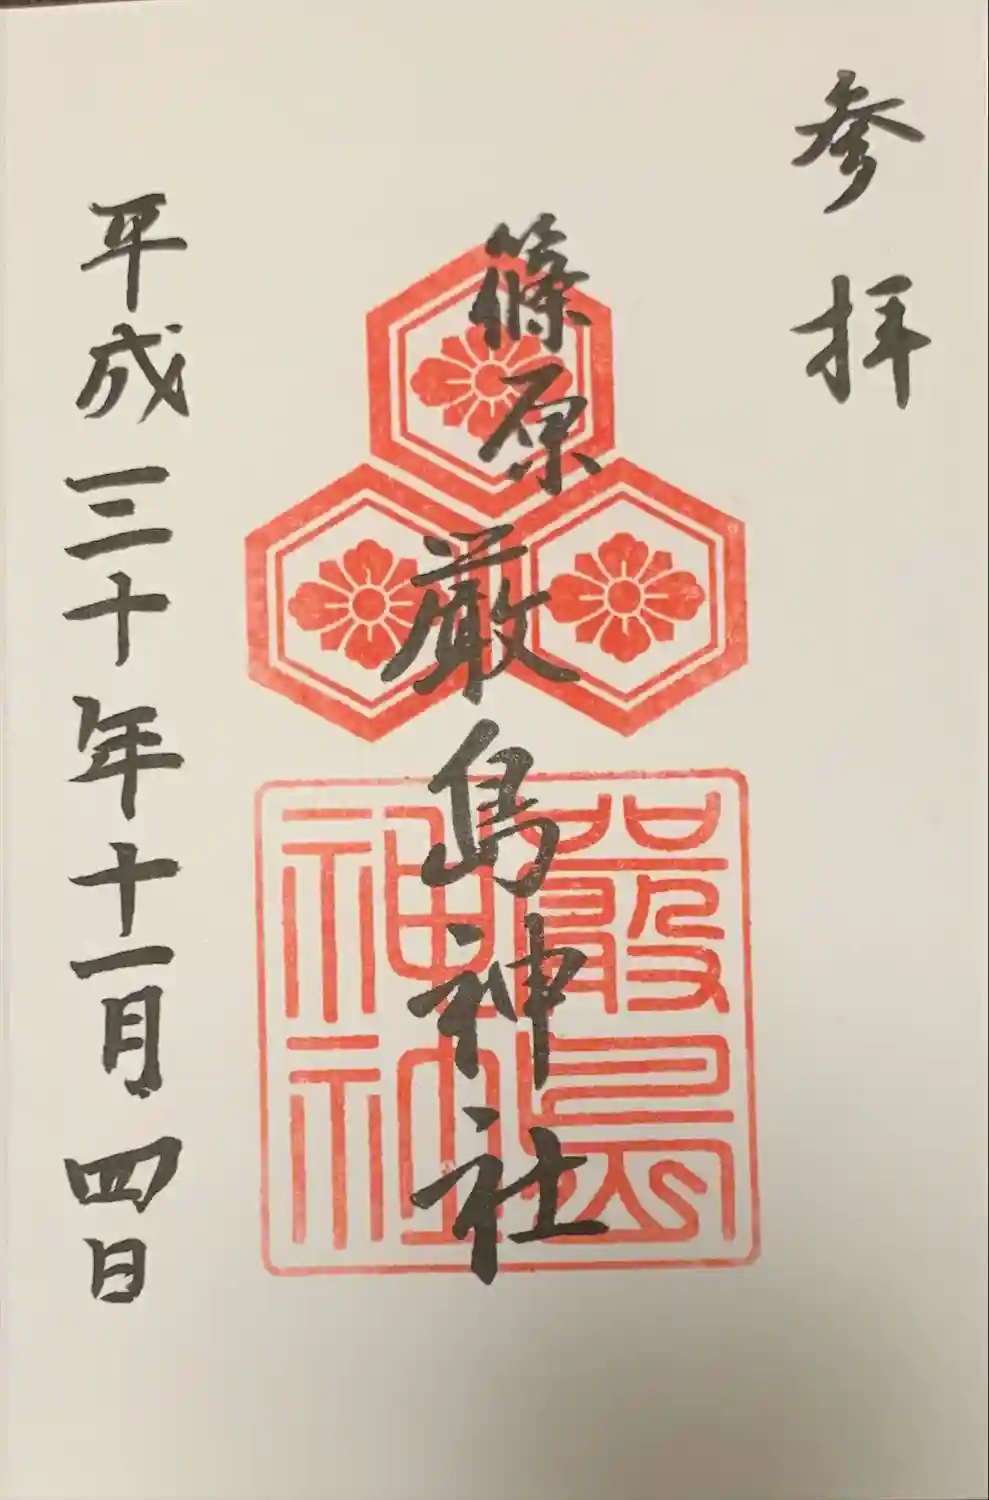 参拝
篠原厳島神社
嚴島
神社
平成三十年十一月四日